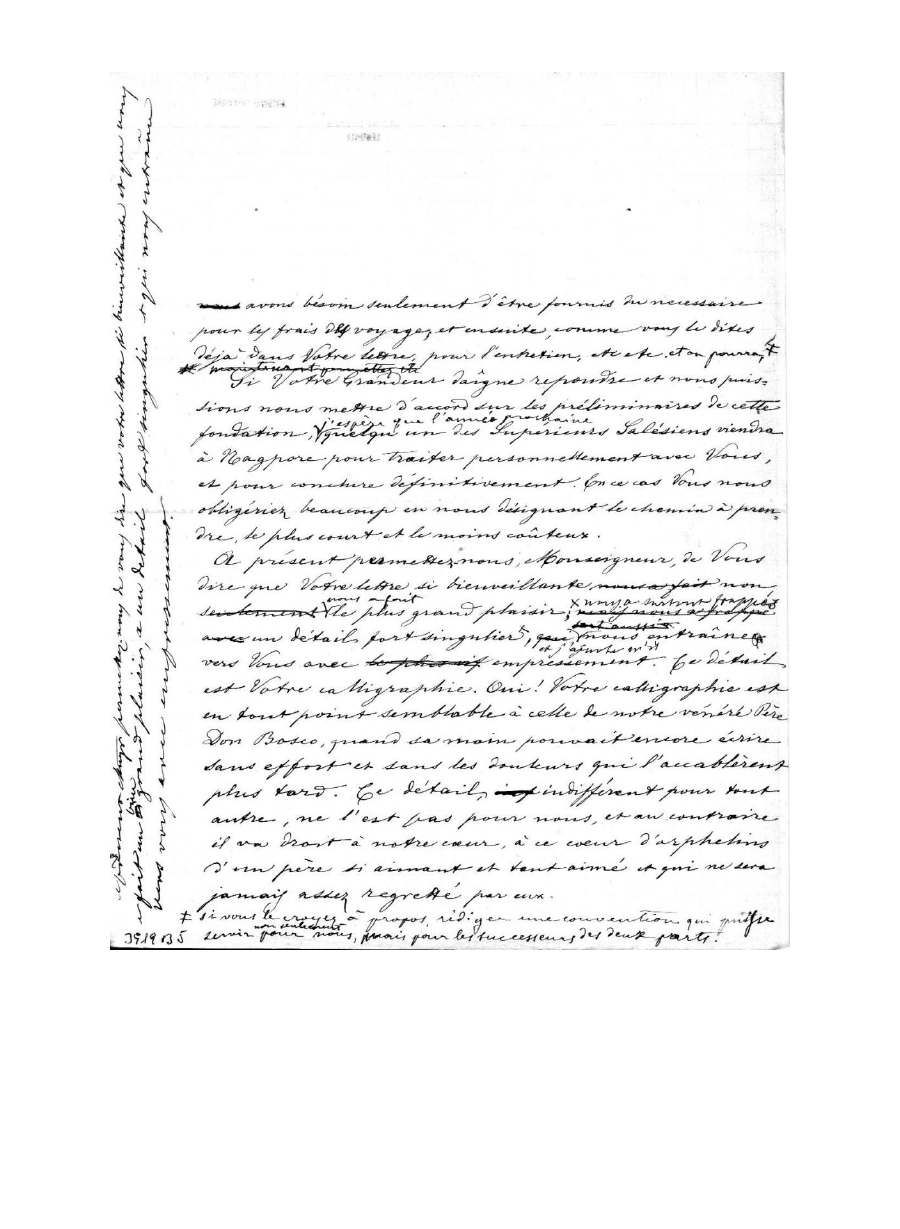 nous avons bésoin seulement d'être fournis du necessaire
pour les frais des voyages, et ensuite, comme vous le dites
déjà dans Votre lettre, pour l'entretien, etc etc, et on pourra, ‡
maintenant permettez etc
Si Votre Grandeur daîgne repondre et nous puis=
sions nous mettre d'accord sur les préliminaires de cette
j'espère que l'année prochaine
fondation, quelqu'un des Superieurs Salésiens viendra
à Nagpore pour traiter personnellement avec Vous,
et pour conclure définitivement. En ce cas Vous nous
obligériez beaucoup en nous désignant le chemin à pren=
dre, le plus court et le moins coûteux.
A présent permettez nous, Monseigneur, de Vous
dire que Votre lettre si bienveillante nous a fait non
nous a fait
x nous a surtout frappés
seulement le plus grand plaisir, mais nous a frappé
fort aussi
avec un détail fort singulier, qui nous entraîne
et j'ajoute
vers Vous avec le plus vif empressement. Ce détail
est Votre calligraphie. Oui! Votre calligraphie est
en tout point semblable à celle de notre vénéré Père
Don Bosco, quand sa main pouvait encore écrire
sans effort et sans les douleurs qui l'accablèrent
plus tard. Ce détail, indifférent pour tout
autre, ne l'est pas pour nous, et au contraire
il va droit à notre cœur, à ce cœur d'orphelins
d'un père si aimant et tant aimé et qui ne sera
jamais assez regretté par eux.
‡ si vous le croyez à propos, rédiger une convention qui puisse
non seulement
servir pour nous, mais pour les successeurs des deux parts.
permettez nous de vous dire que votre lettre si bienveillante et que nous
a fait un grand plaisir, a un détail fort singulier et qui nous entraîne à
vers vous avec empressement.
3919 B 5